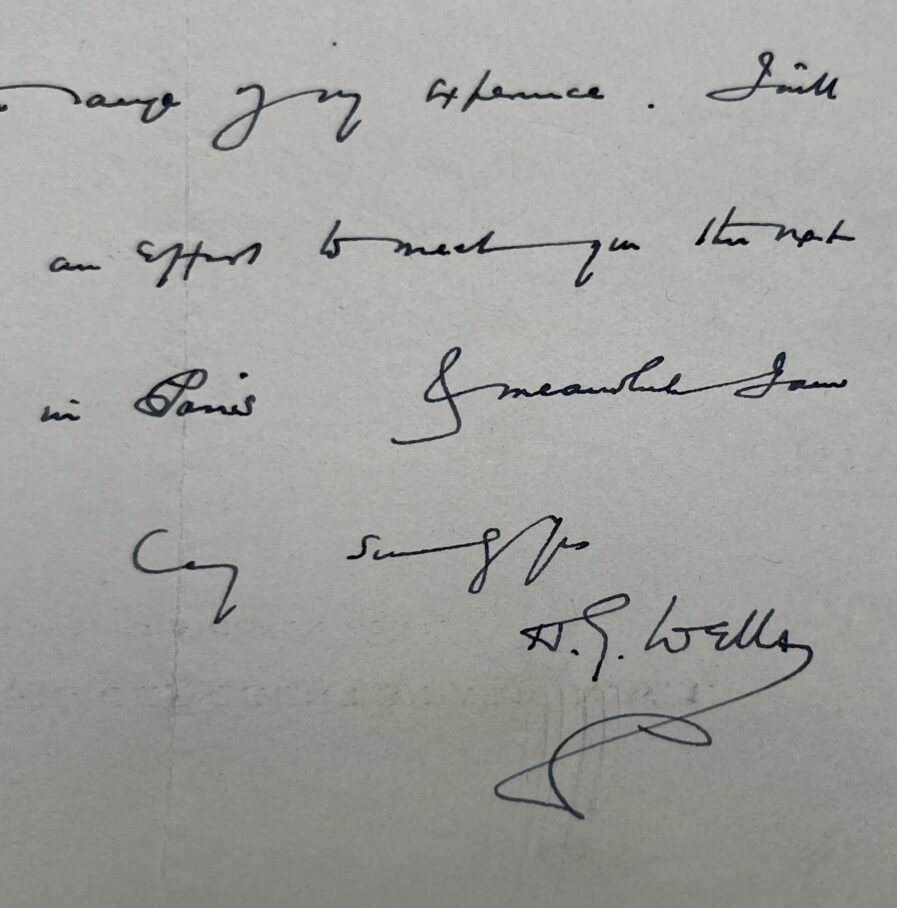 range of my experience. I will
an effort to meet you the next
in Paris & meanwhile I am
Very
H. G. Wells